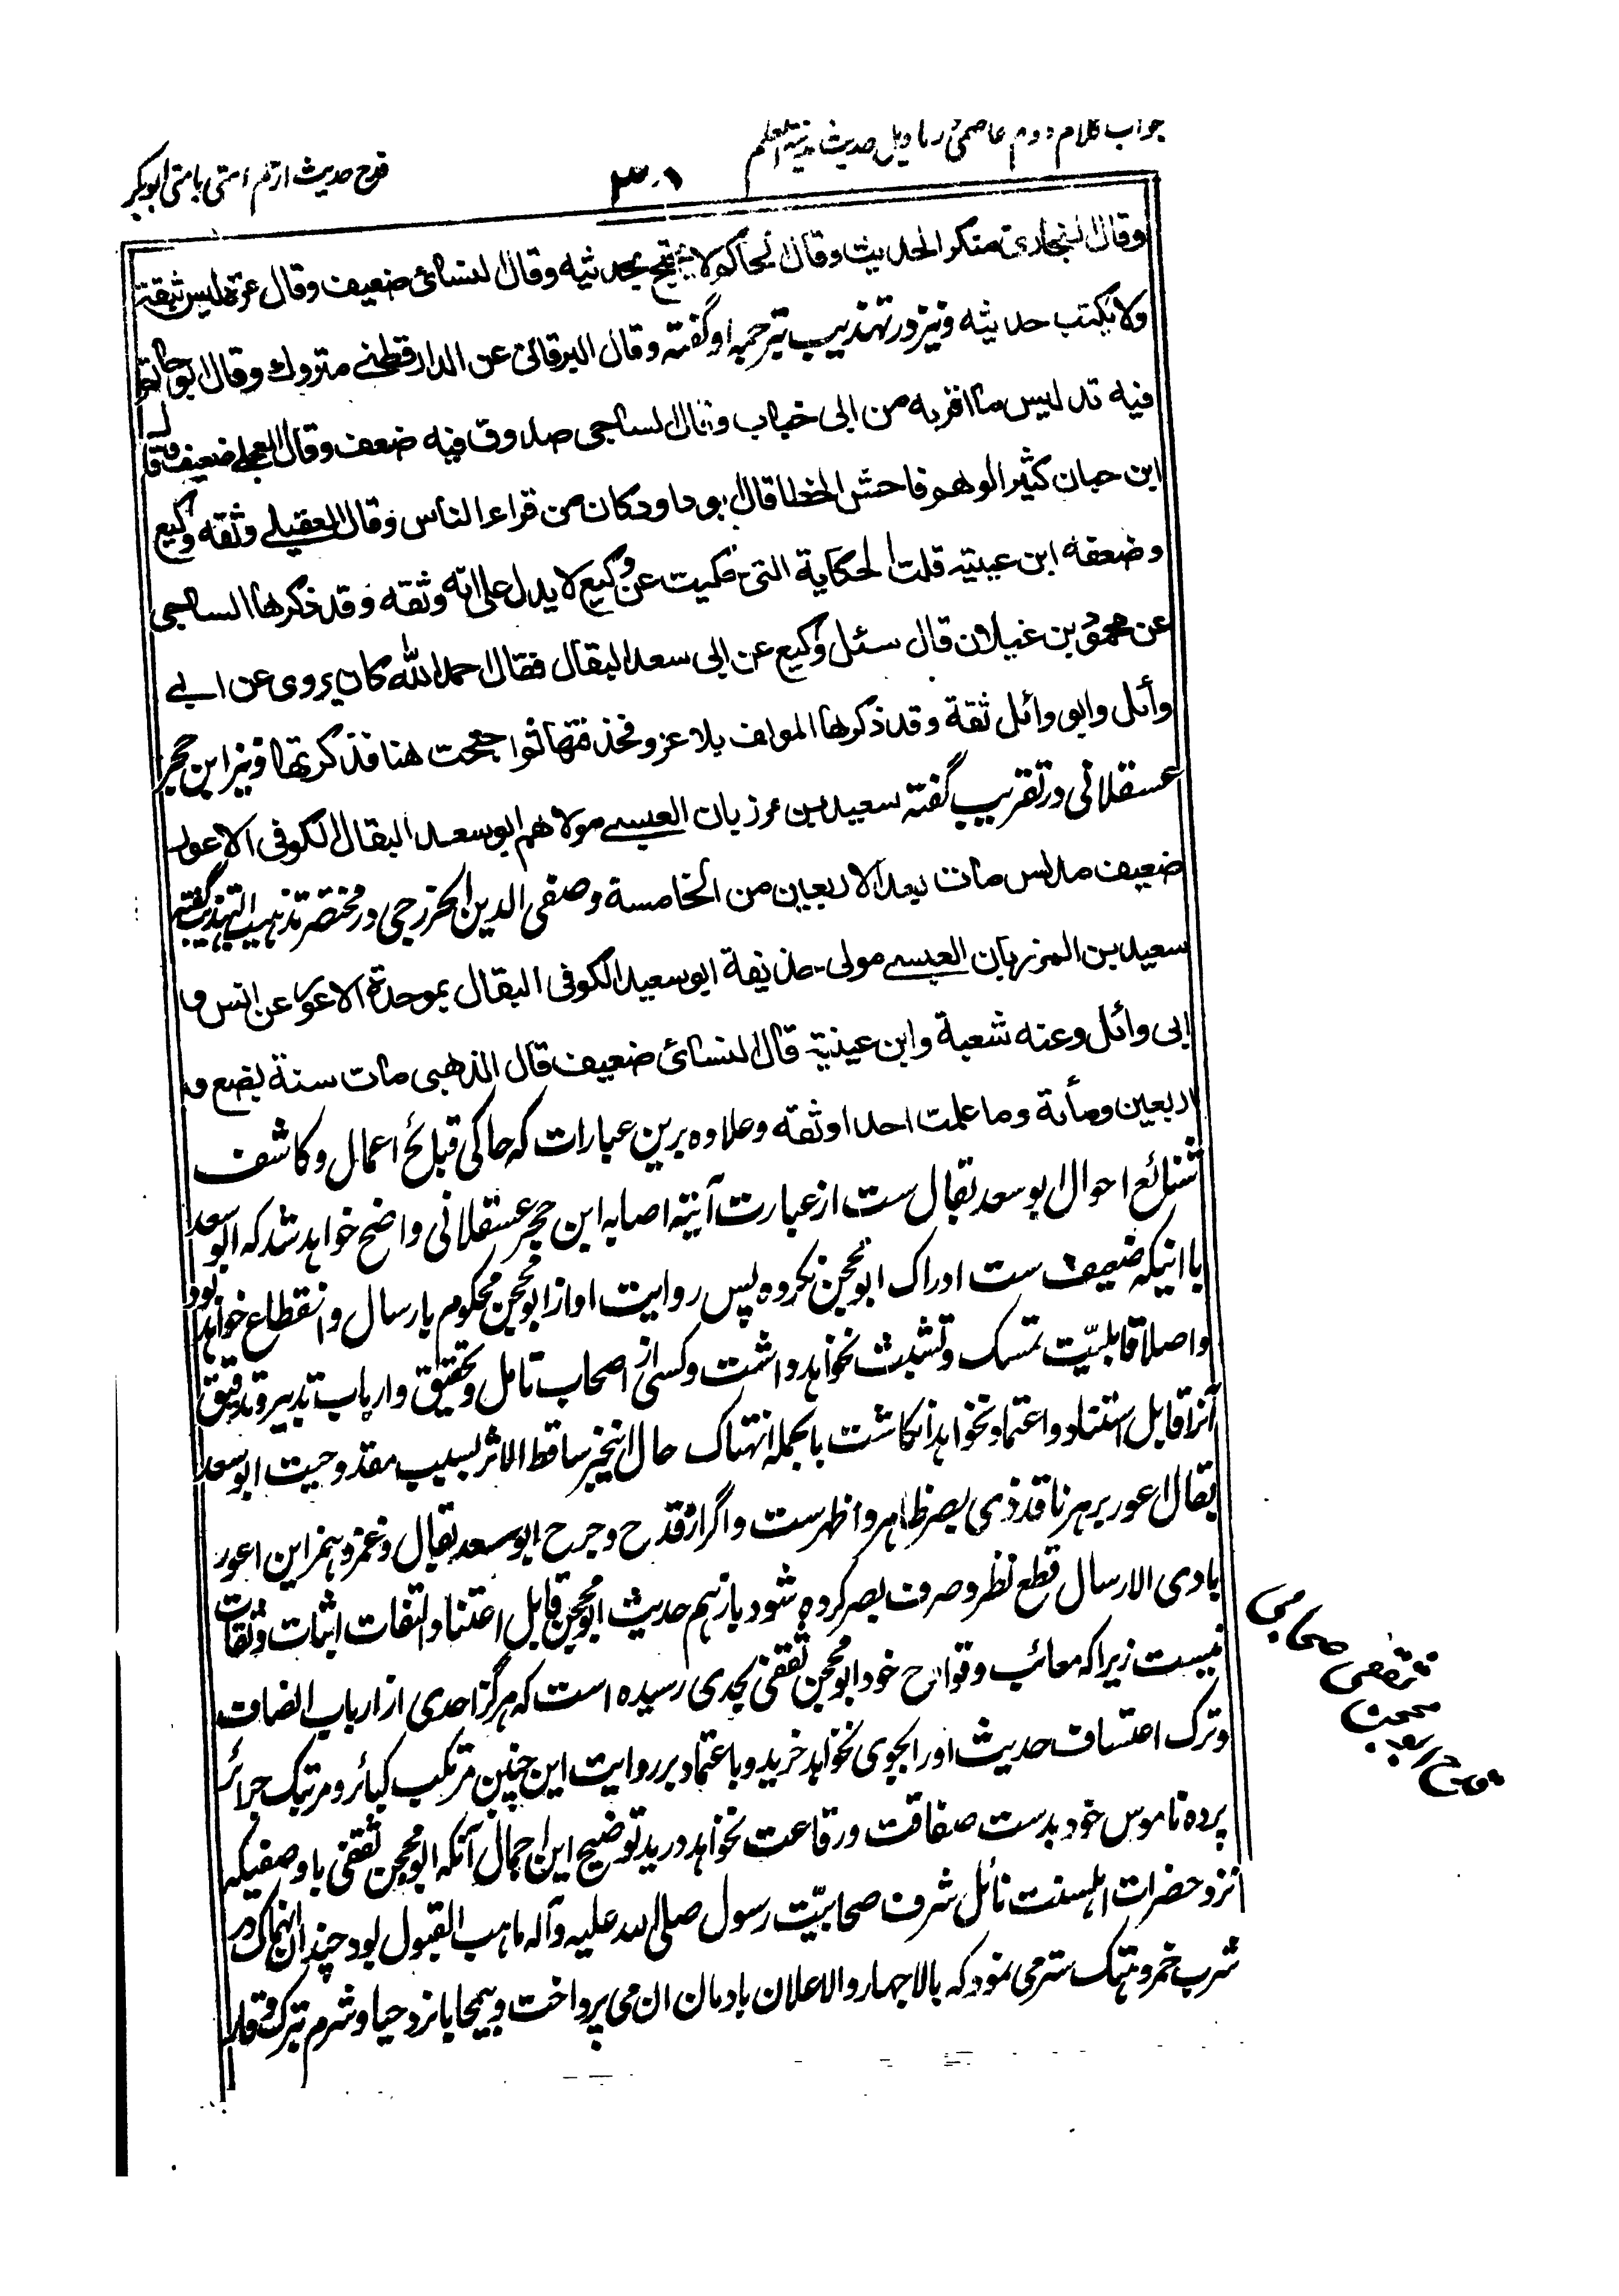 جواب کلام دوم عاصمی در تاویل حدیث مدینة العلم
۳۰۱
قدح حدیث ارحم امتی بامتی ابوبکر
وقال البخاری منکر الحدیث وقال الحاکم لا یحتج بحدیثه وقال النسائی ضعیف وقال مرة لیس بثقة
ولا یکتب حدیثه ونیز در تهذیب بترجمه او گفته وقال البرقانی عن الدارقطنی متروك وقال ابو حاتم
فیه تدلیس ما اقربه من ابی خباب وقال الساجی صدوق فیه ضعف وقال العجلی ضعیف وقال
ابن حبان کثیر الوهم فاحش الخطا قال ابو داود کان من قراء الناس وقال العقیلی وثقه وکیع
وضعفه ابن عیینة قلت الحکایة التی حکیت عن وکیع لا یدل علی انه وثقه وقد ذکرها الساجی
عن محمود بن غیلان قال سئل وکیع عن ابی سعد البقال فقال احمد الله کان یروی عن ابی
وائل وابو وائل ثقة وقد ذکرها المولف بلا عزو فحذفتها ثم احتجت هنا فذکرتها ونیز ابن حجر
عسقلانی در تقریب گفته سعید بن مرزبان العبسی مولاهم ابو سعد البقال الکوفی الاعور
ضعیف مدلس مات بعد الاربعین من الخامسة وصفی الدین الخزرجی در مختصر تذهیب التهذیب گفته
سعید بن المرزبان العبسی مولی حذیفة ابو سعید الکوفی البقال بموحدة الاعور عن انس و
ابی وائل وعنه شعبة وابن عیینة قال النسائی ضعیف قال الذهبی مات سنة بضع و
اربعین ومأئة وما علمت احدا وثقه وعلاوه برین عبارات که حاکی قبائح اعمال و کاشف
شنائع احوال ابو سعد بقال ست از عبارت آتیهٔ اصابه ابن حجر عسقلانی واضح خواهد شد که ابو سعد
با اینکه ضعیف ست ادراک ابو محجن نکرده پس روایت او از ابو محجن محکوم بارسال و انقطاع خواهد بود
و اصلا قابلیّت تمسک و تشبث نخواهد داشت و کسی از اصحاب تامل و تحقیق و ارباب تدبیر و تدقیق
آنرا قابل استناد و اعتماد نخواهد انکاشت بالجمله انتهاک حال این خبر ساقط الاثر بسبب مقدوحیت ابو سعد
بقال اعور بر هر ناقد ذی بصر ظاهر و اظهرست و اگر از قدح و جرح ابو سعد بقال و غمز و همز این اعور
بادی الارسال قطع نظر و صرف بصر کرده شود باز هم حدیث ابو محجن قابل اعتنا و التفات اثبات و ثقات
نیست زیرا که معائب و قوادح خود ابو محجن ثقفی بحدی رسیده است که هرگز احدی از ارباب انصاف
و ترک اعتساف حدیث او را بجوی نخواهد خرید و باعتماد بر روایت این چنین مرتکب کبائر و مرتبک جرائر
پرده ناموس خود بدست صفاقت و رقاعت نخواهد درید توضیح این اجمال آنکه ابو محجن ثقفی با وصفیکه
نزد حضرات اهلسنت نائل شرف صحابیّت رسول صلی الله علیه وآله ما هب القبول بود چندان انهماک در
شرب خمر و هتک ستر می نمود که بالاجهار و الاعلان بادمان ان می پرداخت و بیمحابا نزد حیا و شرم
قدح ابو محجن
ثقفی صحابی